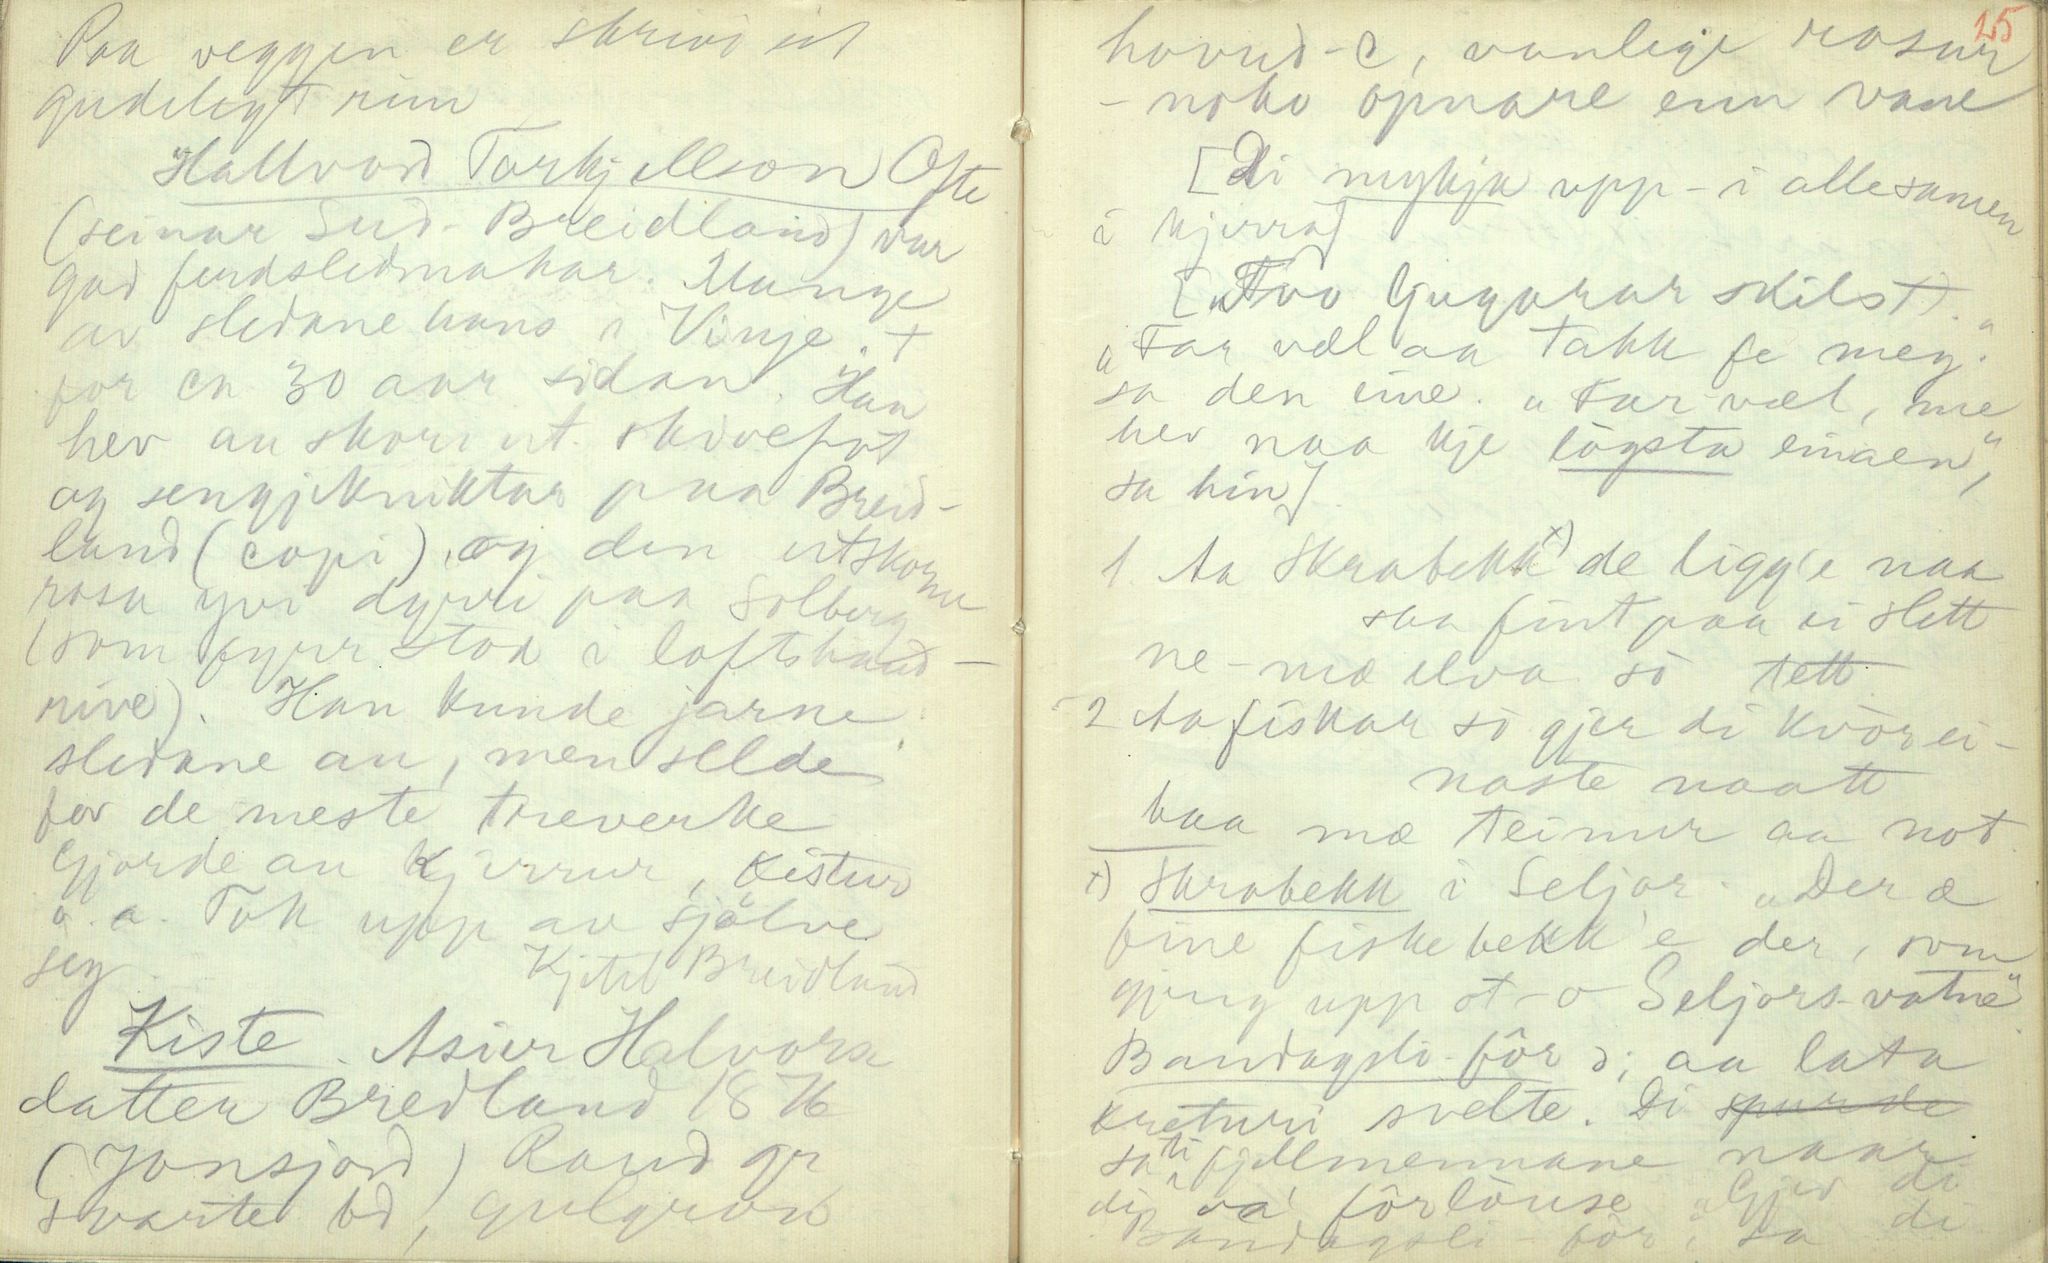 Paa veggen er skrivi eit
gudelegt rim
Hallvord Torkjellson Ofte
(seinar Sud-Breidland) var
god ferdsledmakar. Mange
av sledane hans i Vinje. +
for ca 30 aar sidan. Han
hev au skori ut skivefot
og sengjekniktar paa Breid-
land (copi), og den utskorne
rosa yvi dyrri paa Solberg
(som fyrr stod i lofts
rive). Han kunde jarne
sledane au, men selde
for de meste treverke
Gjorde au kjerrur, kistur
o. a. Tok upp av sjølve
seg. Kjetil Breidland
Kiste. Asier Halvors
datter Bredland 1876
(Jonsjord) Raud gr
svarte bd, gulgrøn
25
hovud-C, vanlege rosur
- noko opnare enn vane
[Di mykja upp-i allesamen
i kjerra]
[„Tvo ljugarar skilst".
„Far væl aa takk fe meg."
sa den eine. „Far væl, me
hev naa kje lögsta einaen",
sa hin].
1. Aa Skrabekk x) de ligg'e naa
saa fint paa ei slett
ne-mæ elva so tett
2 Aa fiskar so gjer di kvor ei-
naste naatt
baa mæ teinur aa not
x) Skrabekk i Seljor. „Der æ
fine fiskebekk'e der, som
gjeng upp ot-o Seljors-vatne"
Bandagsli-fôr æ; aa lata
kreturi svelte. Di spurde
sa ti fjellmennane naar
dei va' fôrlouse „Gjev di
Bandagsli-fôr", sa di